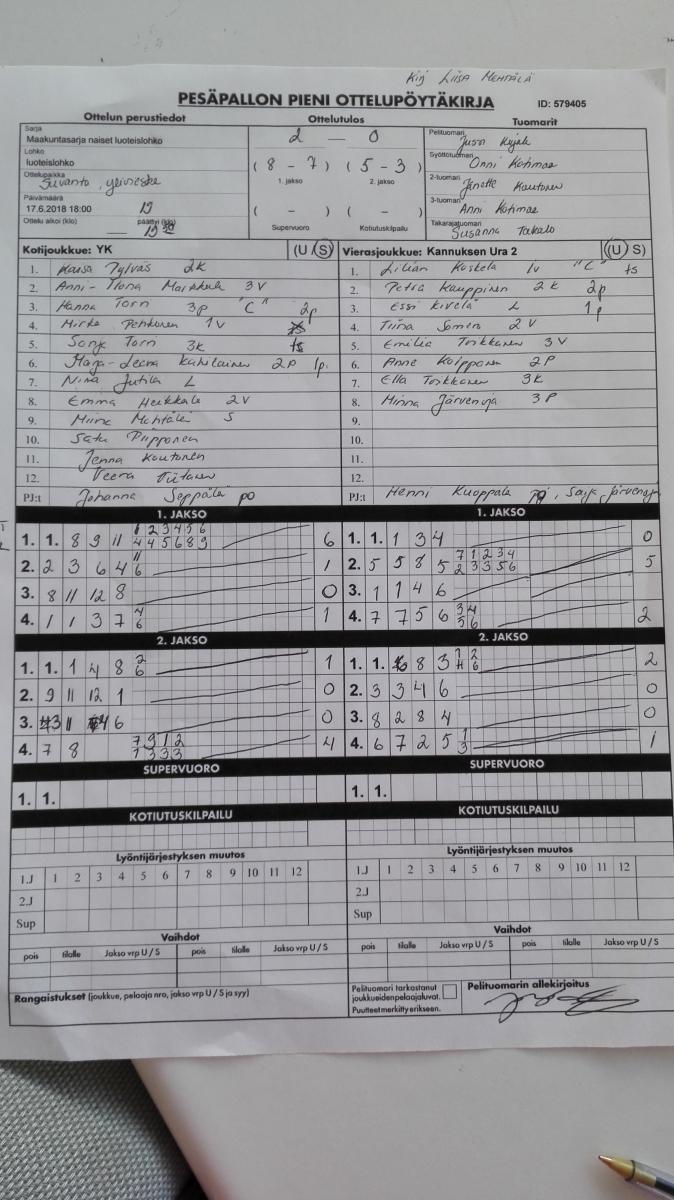 Kirj Liisa Mehtälä
PESÄPALLON PIENI OTTELUPÖYTÄKIRJA ID: 579405
Ottelun perustiedot Ottelutulos Tuomarit
Sarja
Maakuntasarja naiset luoteislohko
2 — 0
Pelituomari
Lohko
luoteislohko
Syöttötuomari Onni Kotimaa
Ottelupaikka
Suvanto, ylivieska
( 8 - 7 ) ( 5 - 3 )
1. jakso 2. jakso
2-tuomari Janette Kautonen
Päivämäärä
17.6.2018 18:00
3-tuomari Anni Kotimaa
Ottelu alkoi (klo) päättyi (klo)
( - ) ( - )
Supervuoro Kotiutuskilpailu
Takarajatuomari
Susanna Takalo
Kotijoukkue: YK (U /S)
1. Kaisa Pylväs 2k
2. Anni-Ilona Markkula 3v
3. Hanna Torn 3p "C" 2p
4. Mirka Pehkonen 1v
5. Sonja Torn 3k ts
6. Maija-Leena Kahilainen 2p 1p.
7. Nina Jutila L
8. Emma Heikkala 2v
9. Miina Mehtälä S
10. Satu Piipponen
11. Jenna Kautonen
12. Veera
PJ:t Johanna Seppälä po
Vierasjoukkue: Kannuksen Ura 2 (U) S)
1. Lilian Koskela 1v "C" ts
2. Petra Kauppinen 2k 2p
3. Essi Kivelä L 1p
4. Tiina Somero 2v
5. Emilia Torkkanen 3v
6. Anne Koipponen 2p
7. Ella Torkkanen 3k
8. Minna Järvenoja 3p
9.
10.
11.
12.
PJ:t Henni Kuoppala, Saija Järvenoja
1. JAKSO 1. JAKSO
1. 1. 8 9 11 1 2 3 4 5 6 6
4 4 5 6 8 9
2. 2 3 6 4 11 1
6
3. 8 11 12 8 0
4. 1 1 3 7 4 1
6
1. 1. 1 3 4 0
2. 5 5 8 5 7 1 2 3 4 5
2 3 3 5 6
3. 1 1 4 6
4. 7 7 5 6 3 4 2
5 6
2. JAKSO 2. JAKSO
1. 1. 1 4 8 2 1
6
2. 9 11 12 1 0
3. 3 11 4 6 0
4. 7 8 7 9 1 2 4
1 3 3 3
1. 1. 8 3 1 2 2
4 6
2. 3 3 4 6 0
3. 8 2 8 4 0
4. 6 7 2 5 1 1
3
SUPERVUORO SUPERVUORO
1. 1. 1. 1.
KOTIUTUSKILPAILU KOTIUTUSKILPAILU
Lyöntijärjestyksen muutos Lyöntijärjestyksen muutos
1.J 1 2 3 4 5 6 7 8 9 10 11 12 1.J 1 2 3 4 5 6 7 8 9 10 11 12
2.J 2.J
Sup Sup
Vaihdot Vaihdot
pois tilalle Jakso vrp U / S pois tilalle Jakso vrp U / S pois tilalle Jakso vrp U / S pois tilalle Jakso vrp U / S
Rangaistukset (joukkue, pelaaja nro, jakso vrp U / S ja syy)
Pelituomari tarkastanut
joukkueidenpelaajaluvat.
Puutteet merkitty erikseen.
Pelituomarin allekirjoitus